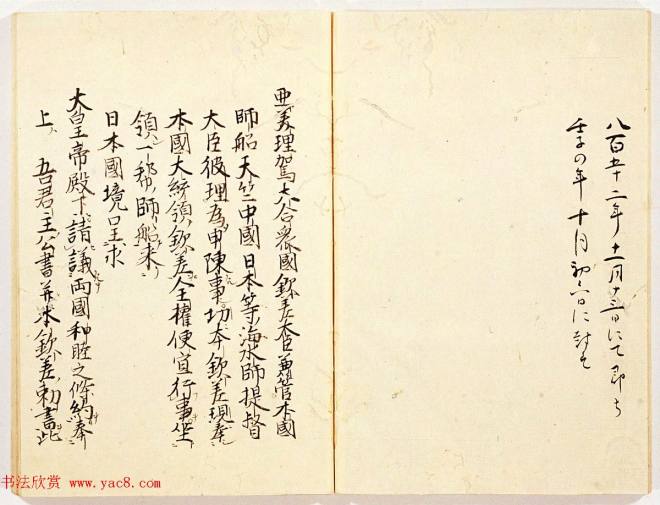 八百五十二年十一月十三日にて即ち
壬子の年十月初六日に対す
亜美理駕大合衆國欽差大臣兼管本國
師船天竺中國日本等海水師提督
大臣彼理為申陳事切本欽差現奉
本國大統領欽差全權便宜行事坐
領一幇師船来
日本國境口呈求
大皇帝殿下請議両國和睦之條約奉
上吾君主公書并本欽差勅書此
书法欣赏 www.yac8.com